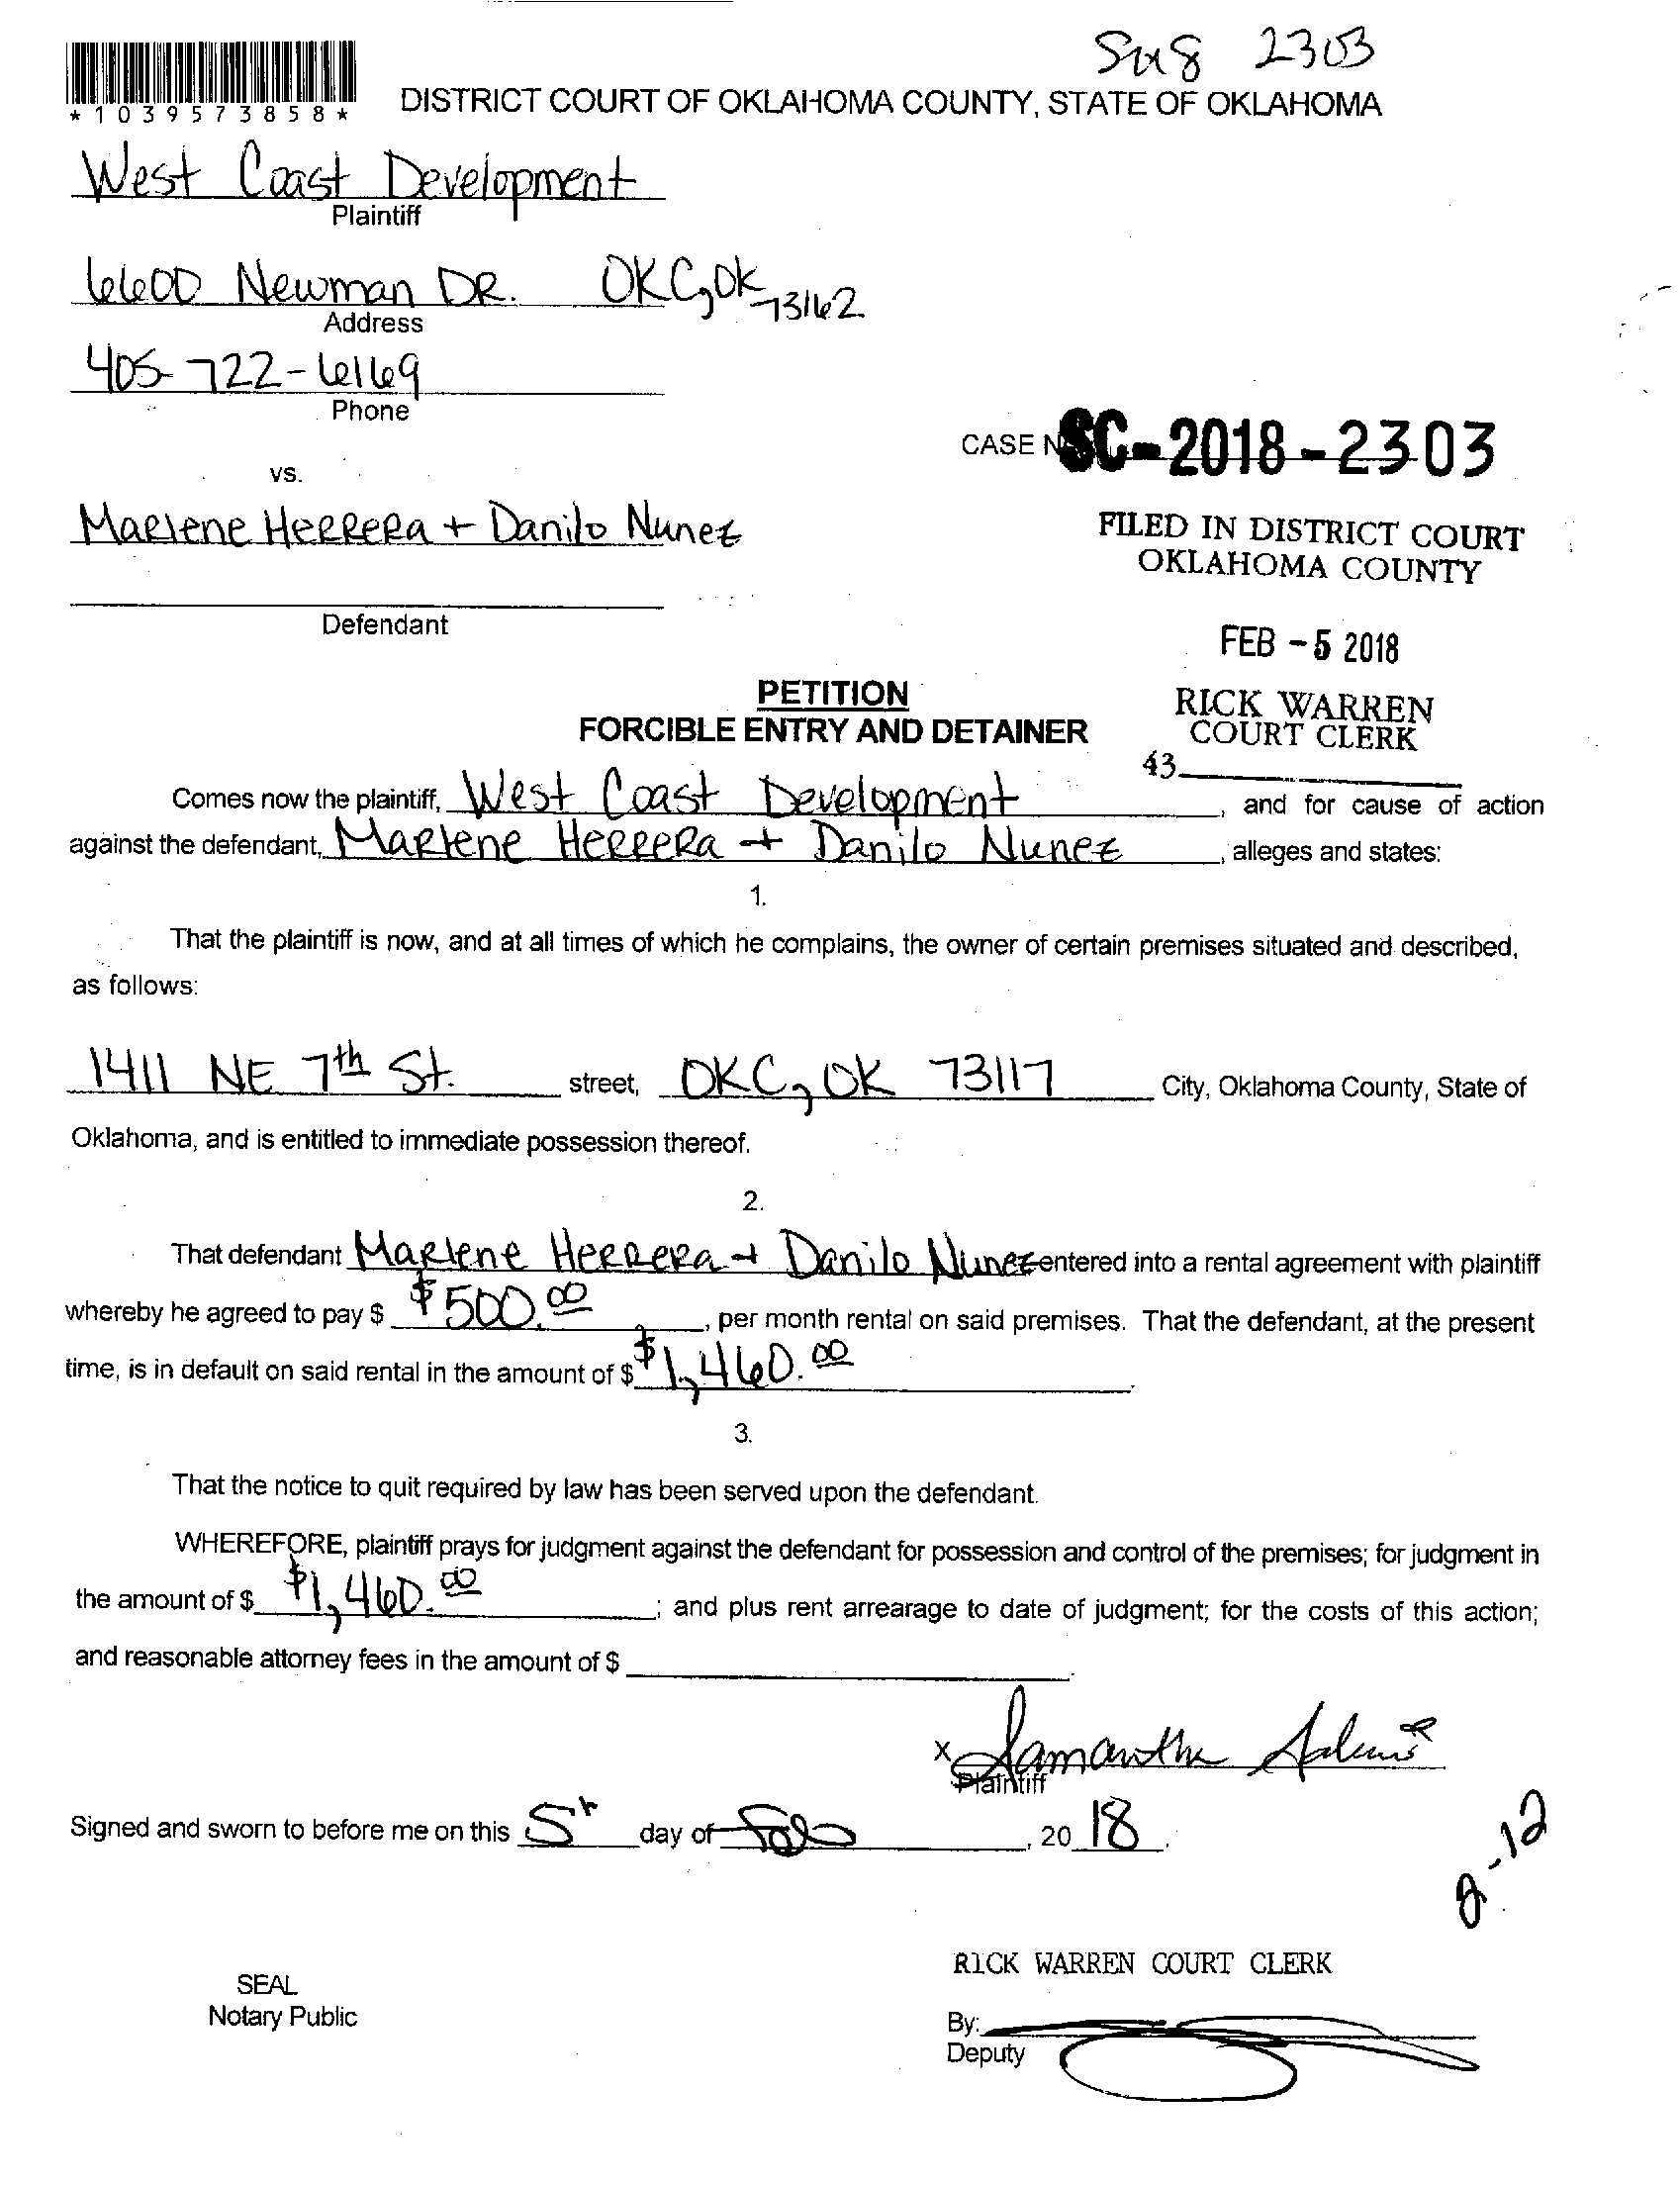 2303
*1039573858*
DISTRICT COURT OF OKLAHOMA COUNTY, STATE OF OKLAHOMA
West Coast Development
Plaintiff
6600 Newman DR. OKC, OK 73162
Address
405-722-6169
Phone
CASE SC-2018-2303
vs.
Marlene Herrera + Danilo Nunez
FILED IN DISTRICT COURT
OKLAHOMA COUNTY
Defendant
FEB -5 2018
PETITION
FORCIBLE ENTRY AND DETAINER
RICK WARREN
COURT CLERK
43
Comes now the plaintiff, West Coast Development, and for cause of action
against the defendant, Marlene Herrera + Danilo Nunez, alleges and states:
1.
That the plaintiff is now, and at all times of which he complains, the owner of certain premises situated and described,
as follows:
1411 NE 7th St. street, OKC, OK 73117 City, Oklahoma County, State of
Oklahoma, and is entitled to immediate possession thereof.
2.
That defendant Marlene Herrera + Danilo Nunez entered into a rental agreement with plaintiff
whereby he agreed to pay $ $500.00, per month rental on said premises. That the defendant, at the present
time, is in default on said rental in the amount of $ $1,460.00.
3.
That the notice to quit required by law has been served upon the defendant.
WHEREFORE, plaintiff prays for judgment against the defendant for possession and control of the premises; for judgment in
the amount of $ $1,460.00; and plus rent arrearage to date of judgment; for the costs of this action;
and reasonable attorney fees in the amount of $
x Samantha
Plaintiff
Signed and sworn to before me on this 5th day of Feb, 2018.
2-12
RICK WARREN COURT CLERK
SEAL
Notary Public
By:
Deputy